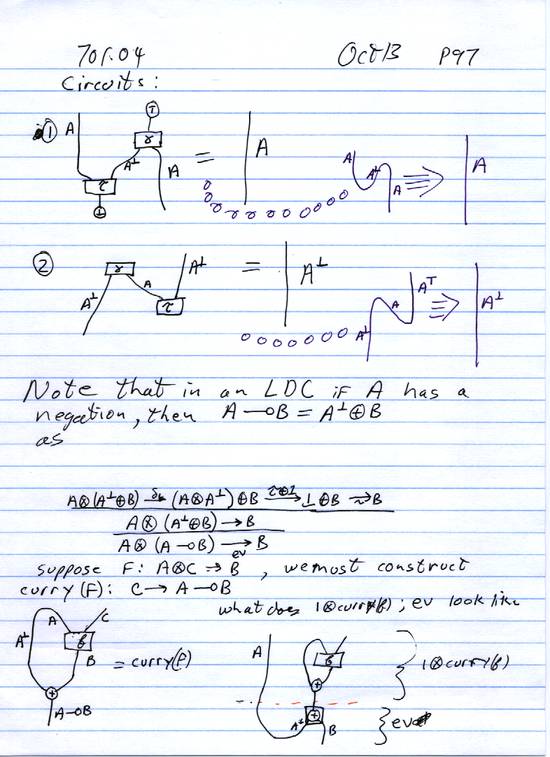 701.04 Oct 13 P97
Circuits:
① A ⊤ γ A⊥ A τ ⊥ = A A A⊥ A ⇛ A
② γ A A⊥ A⊥ τ = A⊥ A⊥ A A⊤ ⇛ A⊥
Note that in an LDC if A has a
negation, then A ⊸ B = A⊥ ⊕ B
as
A⊗(A⊥⊕B) → (A⊗A⊥)⊕B → ⊥⊕B → B
A⊗(A⊥⊕B) → B
A⊗(A⊸B) → B
ev
suppose F: A⊗C → B, we must construct
curry(F): C → A⊸B
what does 1⊗curry(f); ev look like
A C A⊥ f B = curry(f) ⊕ A⊸B
A f ⊕ 1⊗curry(f)
A⊥ ⊕ B ev